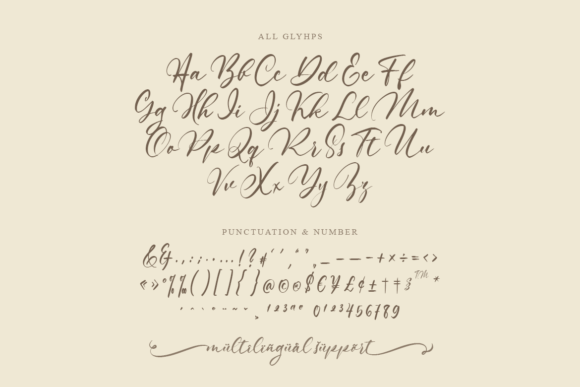 ALL GLYHPS
Aa Bb Cc Dd Ee Ff
Gg Hh Ii Jj Kk Ll Mm
Oo Pp Qq Rr Ss Tt Uu
Vv Xx Yy Zz
PUNCTUATION & NUMBER
& . , : ; … ! ? # _ - – — + × ÷ = < >
« » ° % ‰ ( ) [ ] { } @ $ € ¥ £ ¢ ± † ‡ ™ *
0123456789
multilingual support